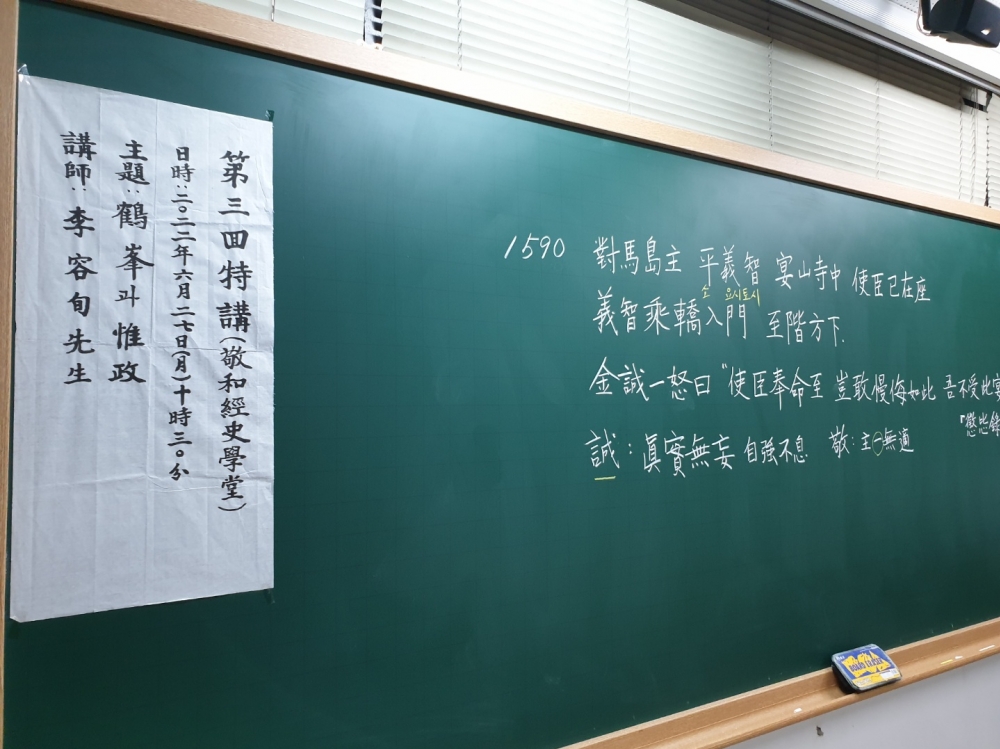 第三回特講(敬和經史學堂)
日時:二〇二二年六月二七日(月)十時三〇分
主題:鶴峯과 惟政
講師:李容旬先生
1590 對馬島主 平義智 宴山寺中 使臣已在座
소 요시토시
義智乘轎入門 至階方下.
金誠一怒曰 "使臣奉命至 豈敢慢侮如此 吾不受比宴
『懲毖錄
誠: 眞實無妄 自強不息 敬: 主一無適